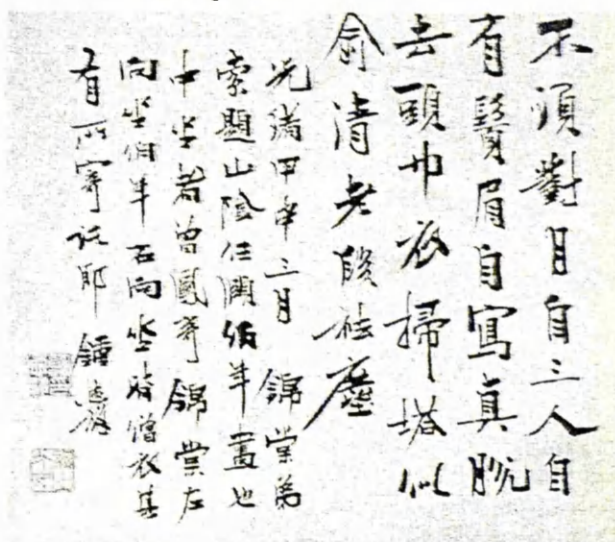 不須對月自三人自
有鬢眉自寫真脫
去頭巾衣掃塔似
俞清老暖袪塵
光緒甲申三月 錦堂弟
索題山陰任阜長伯年畫也
中坐者曾鳳寄 錦堂左
向坐伯年右向坐皆僧衣其
有所寄託耶 鍾德祥